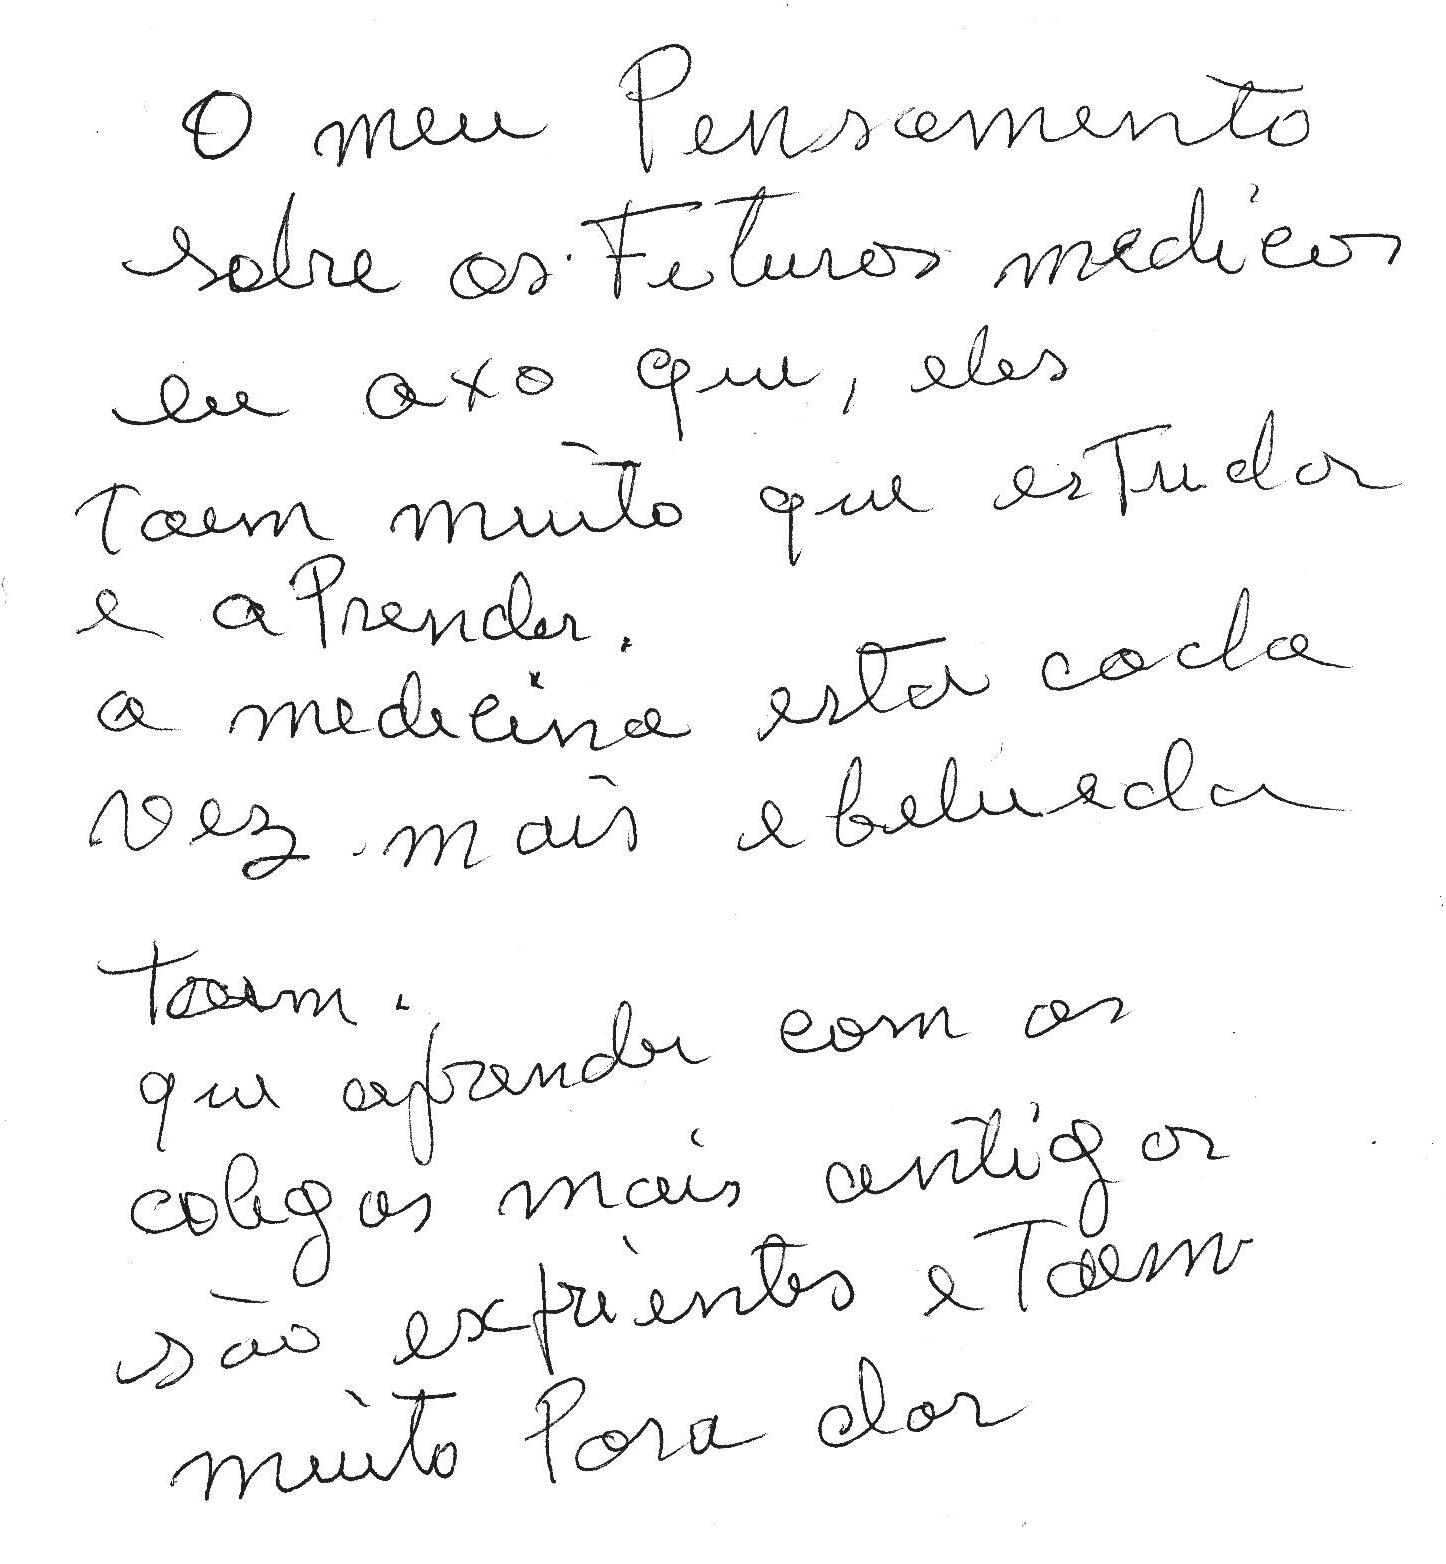 O meu Pensamento
sobre os Futuros medicos
eu axo que, eles
Taem muito que esTudar
e aPrender.
a medicina esta cada
vez mais ebeluida
taem.
que aprender com os
colegas mais antigos
são exprientes e Taem
muito Para dar